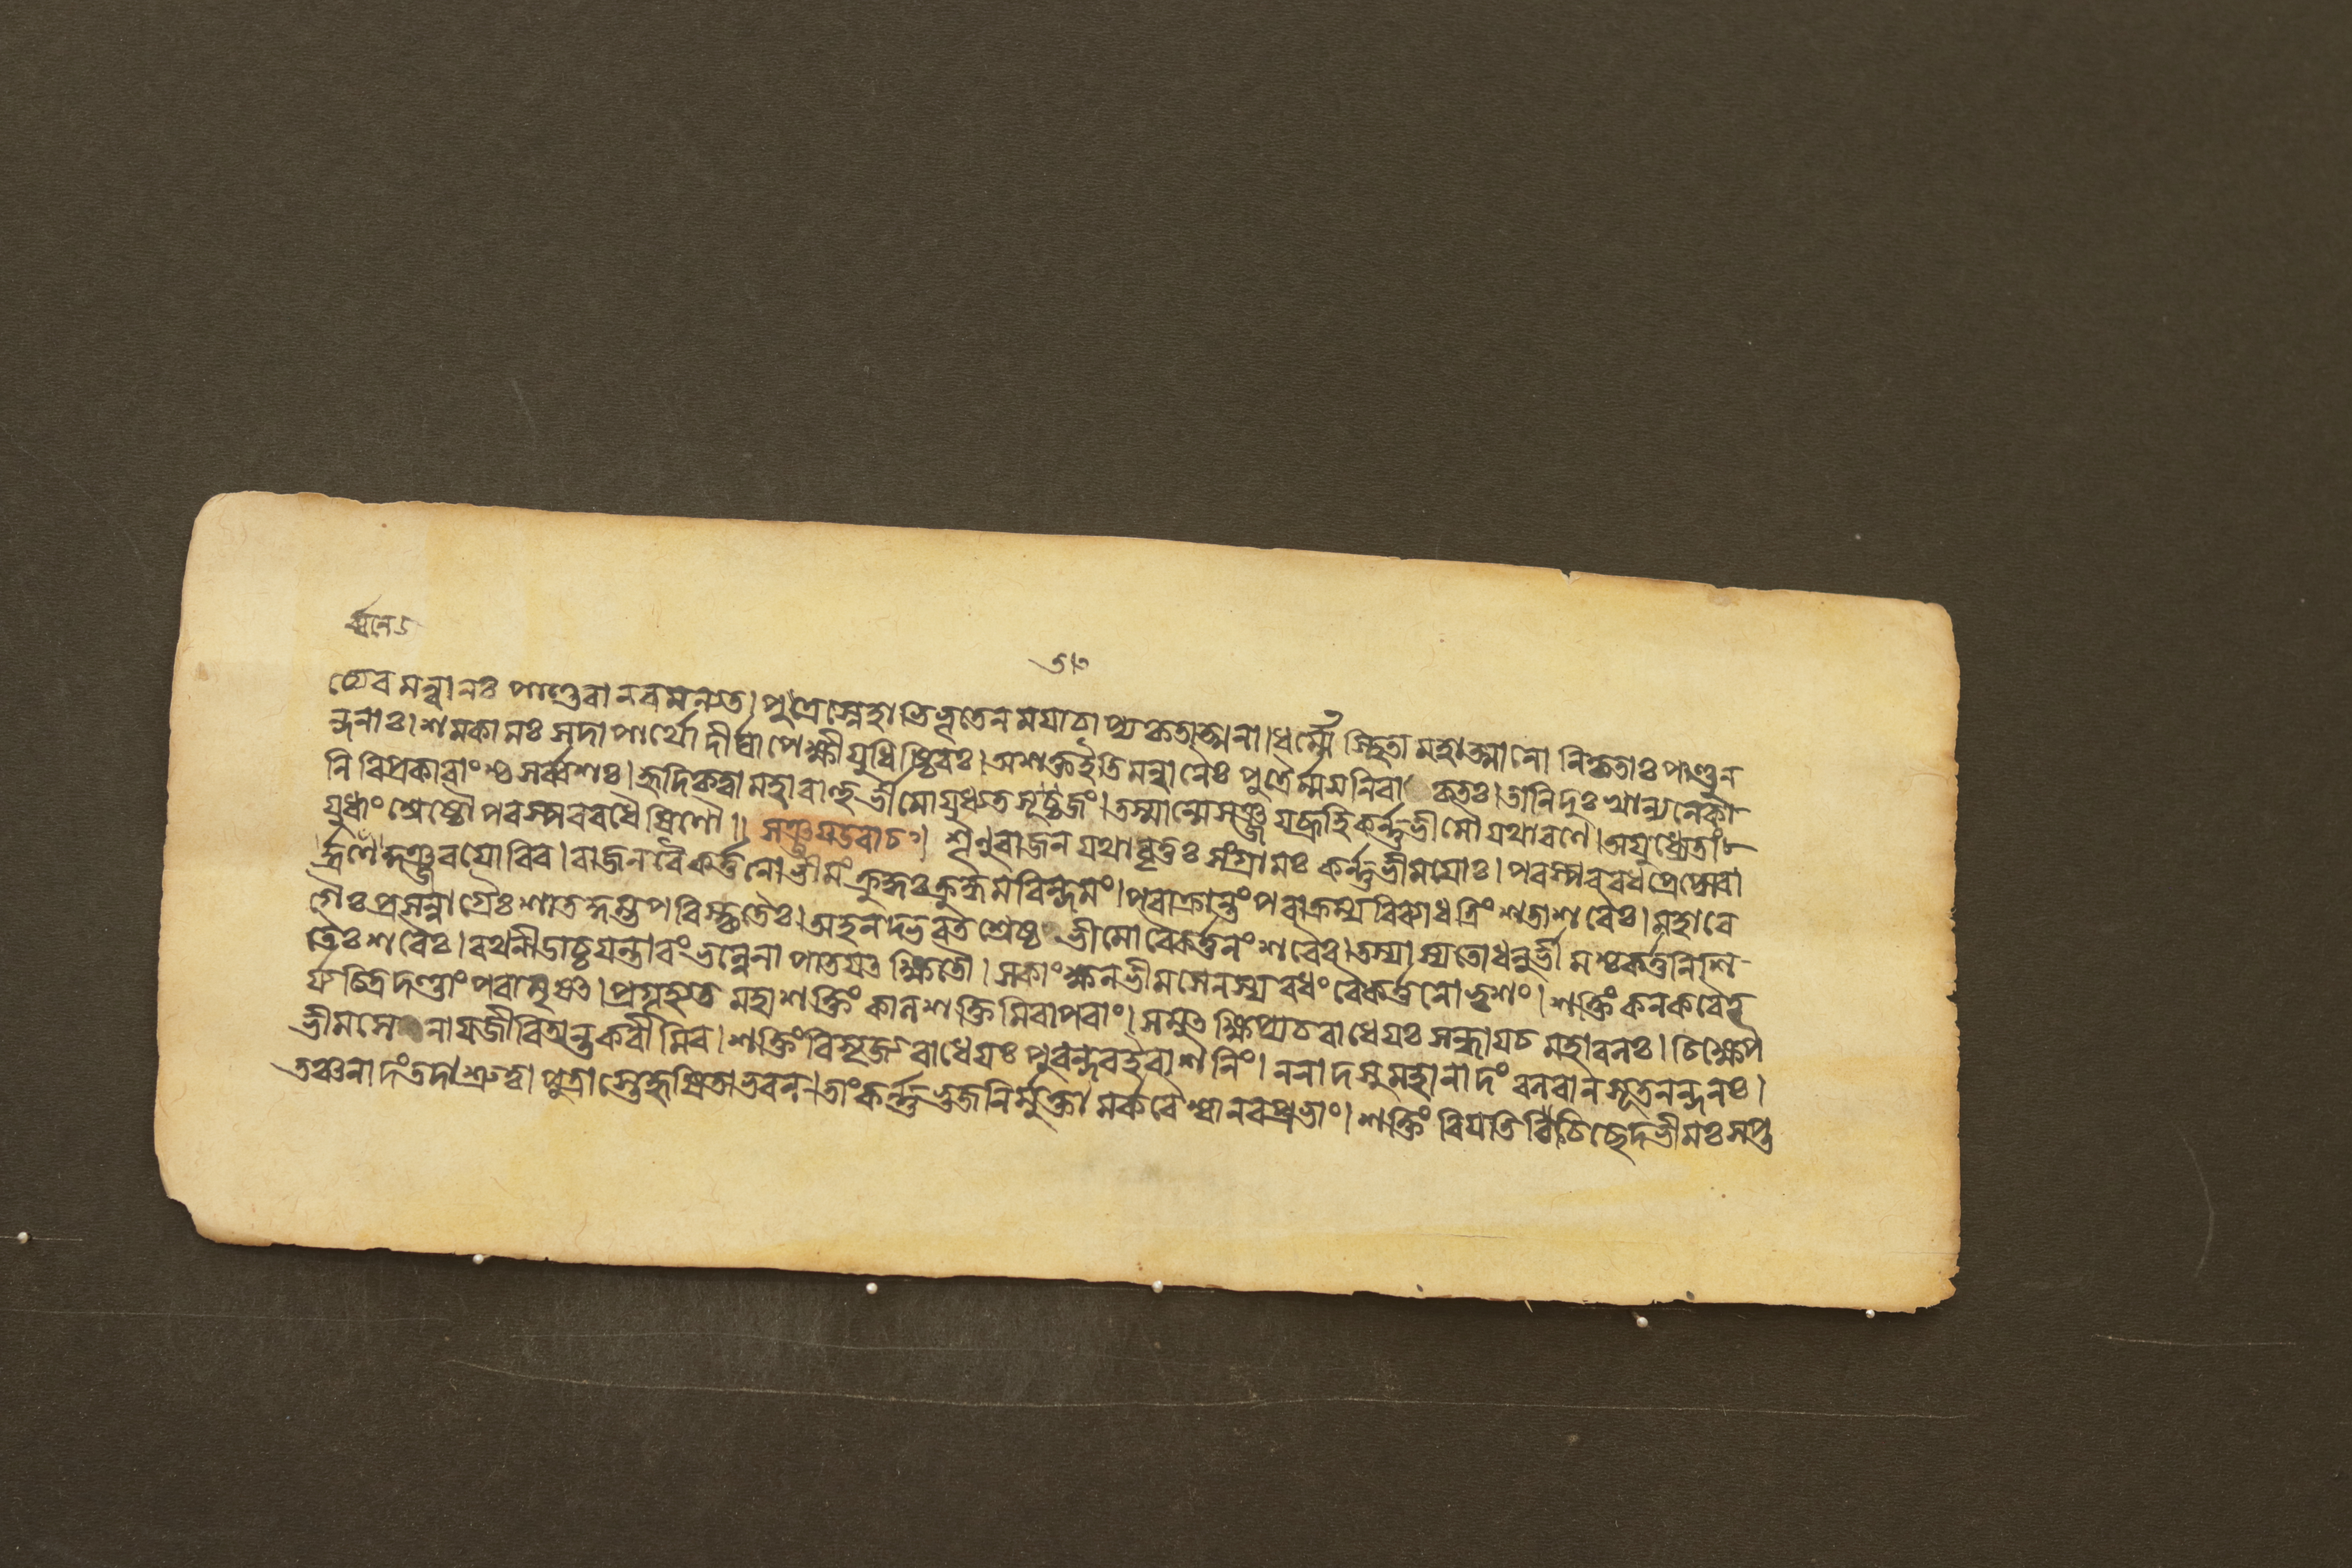 হ্যেব মন্বানঃ পাণ্ডবানবমন্যতে। পুত্রস্নেহাভিভূতেন ময়াচাপ্যকৃতাত্মনা। ধর্ম্মেস্থিতা মহাত্মানো নিকৃতাঃ পাণ্ডুন
ন্দনাঃ। শমকামঃ সদাপার্থো দীর্ঘাপেক্ষীযুধিষ্ঠিরঃ। অশক্তইতি মন্বানৈঃ পুত্রৈর্ম্মমনিরাকৃতঃ। তানিদুঃখান্যনেকা
নি বিপ্রকারাংশ্চ সর্ব্বশঃ। হৃদিকৃত্বা মহাবাহুর্ভীমোযুধ্যত সূতজং। তস্মান্মেসঞ্জয়ব্রূহি কর্ন্নভীমৌ যথারণে। অযুধ্যেতাং
যুধাংশ্রেষ্ঠৌ পরস্পরবধৈষিণৌ॥ সঞ্জয়উবাচ। শৃণুরাজন যথাবৃত্তঃ সংগ্রামঃ কর্ন্নভীময়োঃ। পরস্পরবধপ্রেপ্সোরা
কুঞ্জরয়োরিব। রাজন বৈকর্ত্তনো ভীমং ক্রুদ্ধঃ ক্রুদ্ধমরিন্দমং। পরাক্রান্তং পরাক্রম্য বিব্যাধ ত্রিংশতাশরৈঃ। মহাবে
গৈঃ প্রসন্নাগ্রৈঃ শাতকুম্ভপরিষ্কৃতৈঃ। অহনদ্ভরতশ্রেষ্ঠ ভীমোবৈকর্ত্তনং শরৈঃ। তস্যাস্যতোধনুর্ভীমশ্চকর্ত্তনিশি
তৈঃ শরৈঃ। রথনীডাচ্চযন্তারং ভল্লেনাপাতয়ৎ ক্ষিতৌ। সকাংক্ষন ভীমসেনস্য বধং বৈকর্ত্তনোভৃশং। শক্তিং কনকবৈদূ
র্যচিত্রদণ্ডাং পরামৃষৎ। প্রগৃহ্যত মহাশক্তিং কালশক্তিমিবাপরাং। সমুৎক্ষিপ্যচরাধেয়ঃ সন্ধায়চ মহাবলঃ। চিক্ষেপ
ভীমসেনায়জীবিতান্তকরীমিব। শক্তিং বিসৃজ্যরাধেয়ঃ পুরন্দরইবাশনিং। ননাদসুমহানাদং বলবান সূতনন্দনঃ।
তঞ্চনাদংতদাশ্রুত্বা পুত্রাস্তেহৃষিতাভবন। তাং কর্ন্নভুজনির্মুক্তামর্কবৈশ্বানরপ্রভাং। শক্তিং বিয়তি চিচ্ছেদভীমঃ সপ্ত